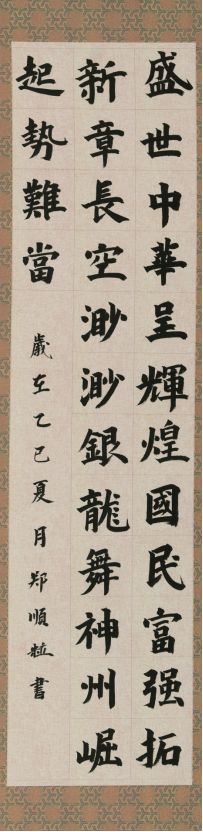 盛世中華呈輝煌國民富强拓
新章長空渺渺銀龍舞神州崛
起勢難當
歲在乙巳夏月郑順粒書